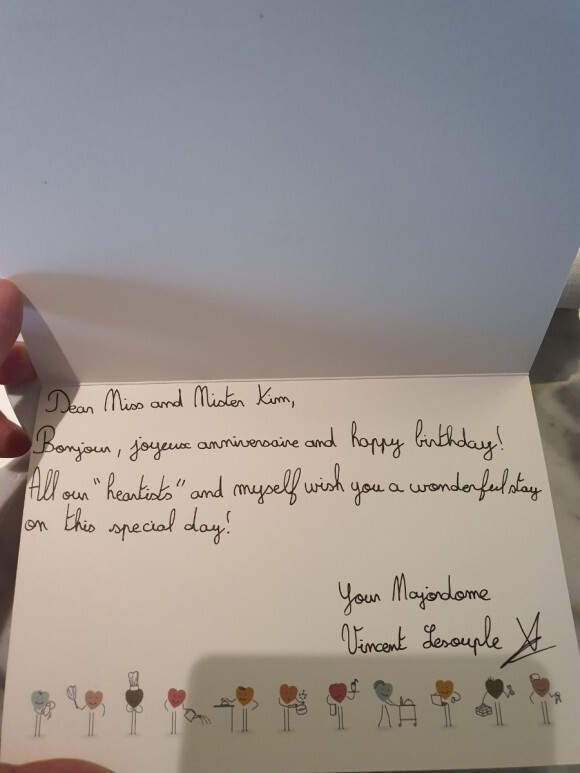 Dear Miss and Mister Kim,
Bonjour, joyeux anniversaire and happy birthday!
All our "heartists" and myself wish you a wonderful stay
on this special day!
Your Majordome
Vincent Lesouple